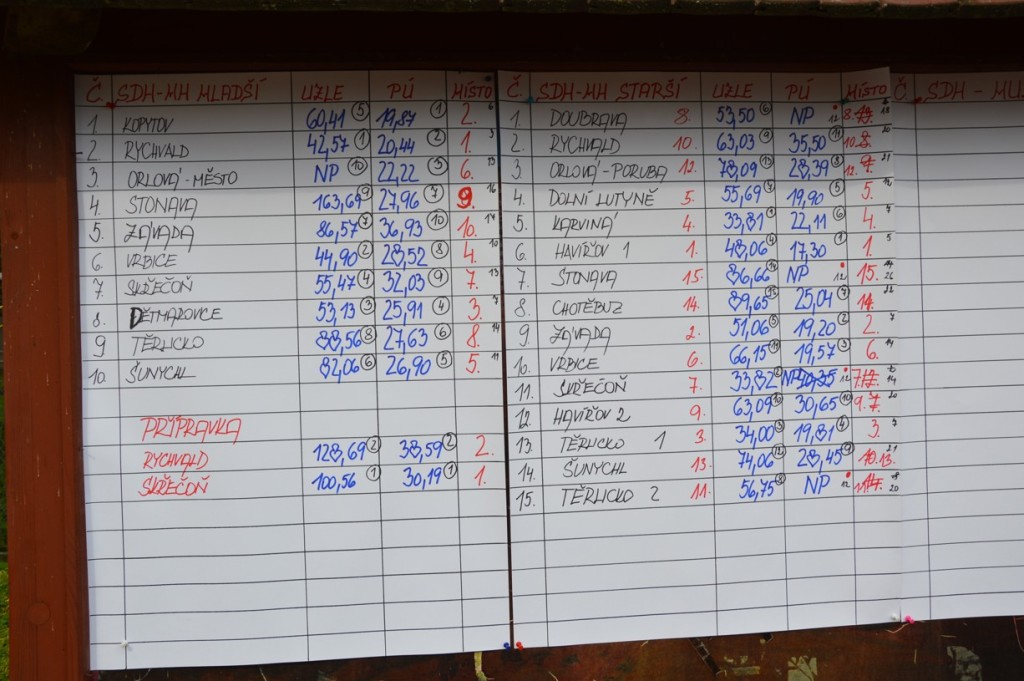 Č. SDH-MH MLADŠÍ UZLE PÚ MÍSTO
1. KOPYTOV 60,41 5 19,87 1 2. 6
2. RYCHVALD 42,57 1 20,44 2 1. 3
3. ORLOVÁ-MĚSTO NP 10 22,22 3 6. 13
4. STONAVA 163,69 9 27,96 7 9. 16
5. ZÁVADA 86,57 7 36,93 10 10. 17
6. VRBICE 44,90 2 28,52 8 4. 10
7. SKŘEČOŇ 55,47 4 32,03 9 7. 13
8. DĚTMAROVCE 53,13 3 25,91 4 3. 7
9 TĚRLICKO 88,56 8 27,63 6 8. 14
10. ŠUNYCHL 82,06 6 26,90 5 5. 11
PŘÍPRAVKA
RYCHVALD 128,69 2 38,59 2 2.
SKŘEČOŇ 100,56 1 30,19 1 1.
Č. SDH-MH STARŠÍ UZLE PÚ MÍSTO
1. DOUBRAVA 8. 53,50 6 NP 12 8. 18
2. RYCHVALD 10. 63,03 9 35,50 11 10. 8. 20
3. ORLOVÁ-PORUBA 12. 78,09 13 28,39 8 12. 9. 21
4. DOLNÍ LUTYNĚ 5. 55,69 7 19,90 5 5. 12
5. KARVINÁ 4. 33,81 1 22,11 6 4. 7
6. HAVÍŘOV 1 1. 48,06 4 17,30 1 1. 5
7. STONAVA 15. 86,66 14 NP 12 15. 26
8. CHOTĚBUZ 14. 89,65 15 25,04 7 14. 22
9. ZÁVADA 2. 51,06 5 19,20 2 2. 7
10. VRBICE 6. 66,15 11 19,57 3 6. 14
11. SKŘEČOŇ 7. 33,82 2 NP 12 7. 12. 14
12. HAVÍŘOV 2 9. 63,09 10 30,65 10 9. 7. 20
13 TĚRLICKO 1 3. 34,00 3 19,81 4 3. 7
14. ŠUNYCHL 13. 74,06 12 28,45 9 10. 13. 21
15. TĚRLICKO 2 11. 56,75 8 NP 12 11. 14. 20
Č SDH - ML